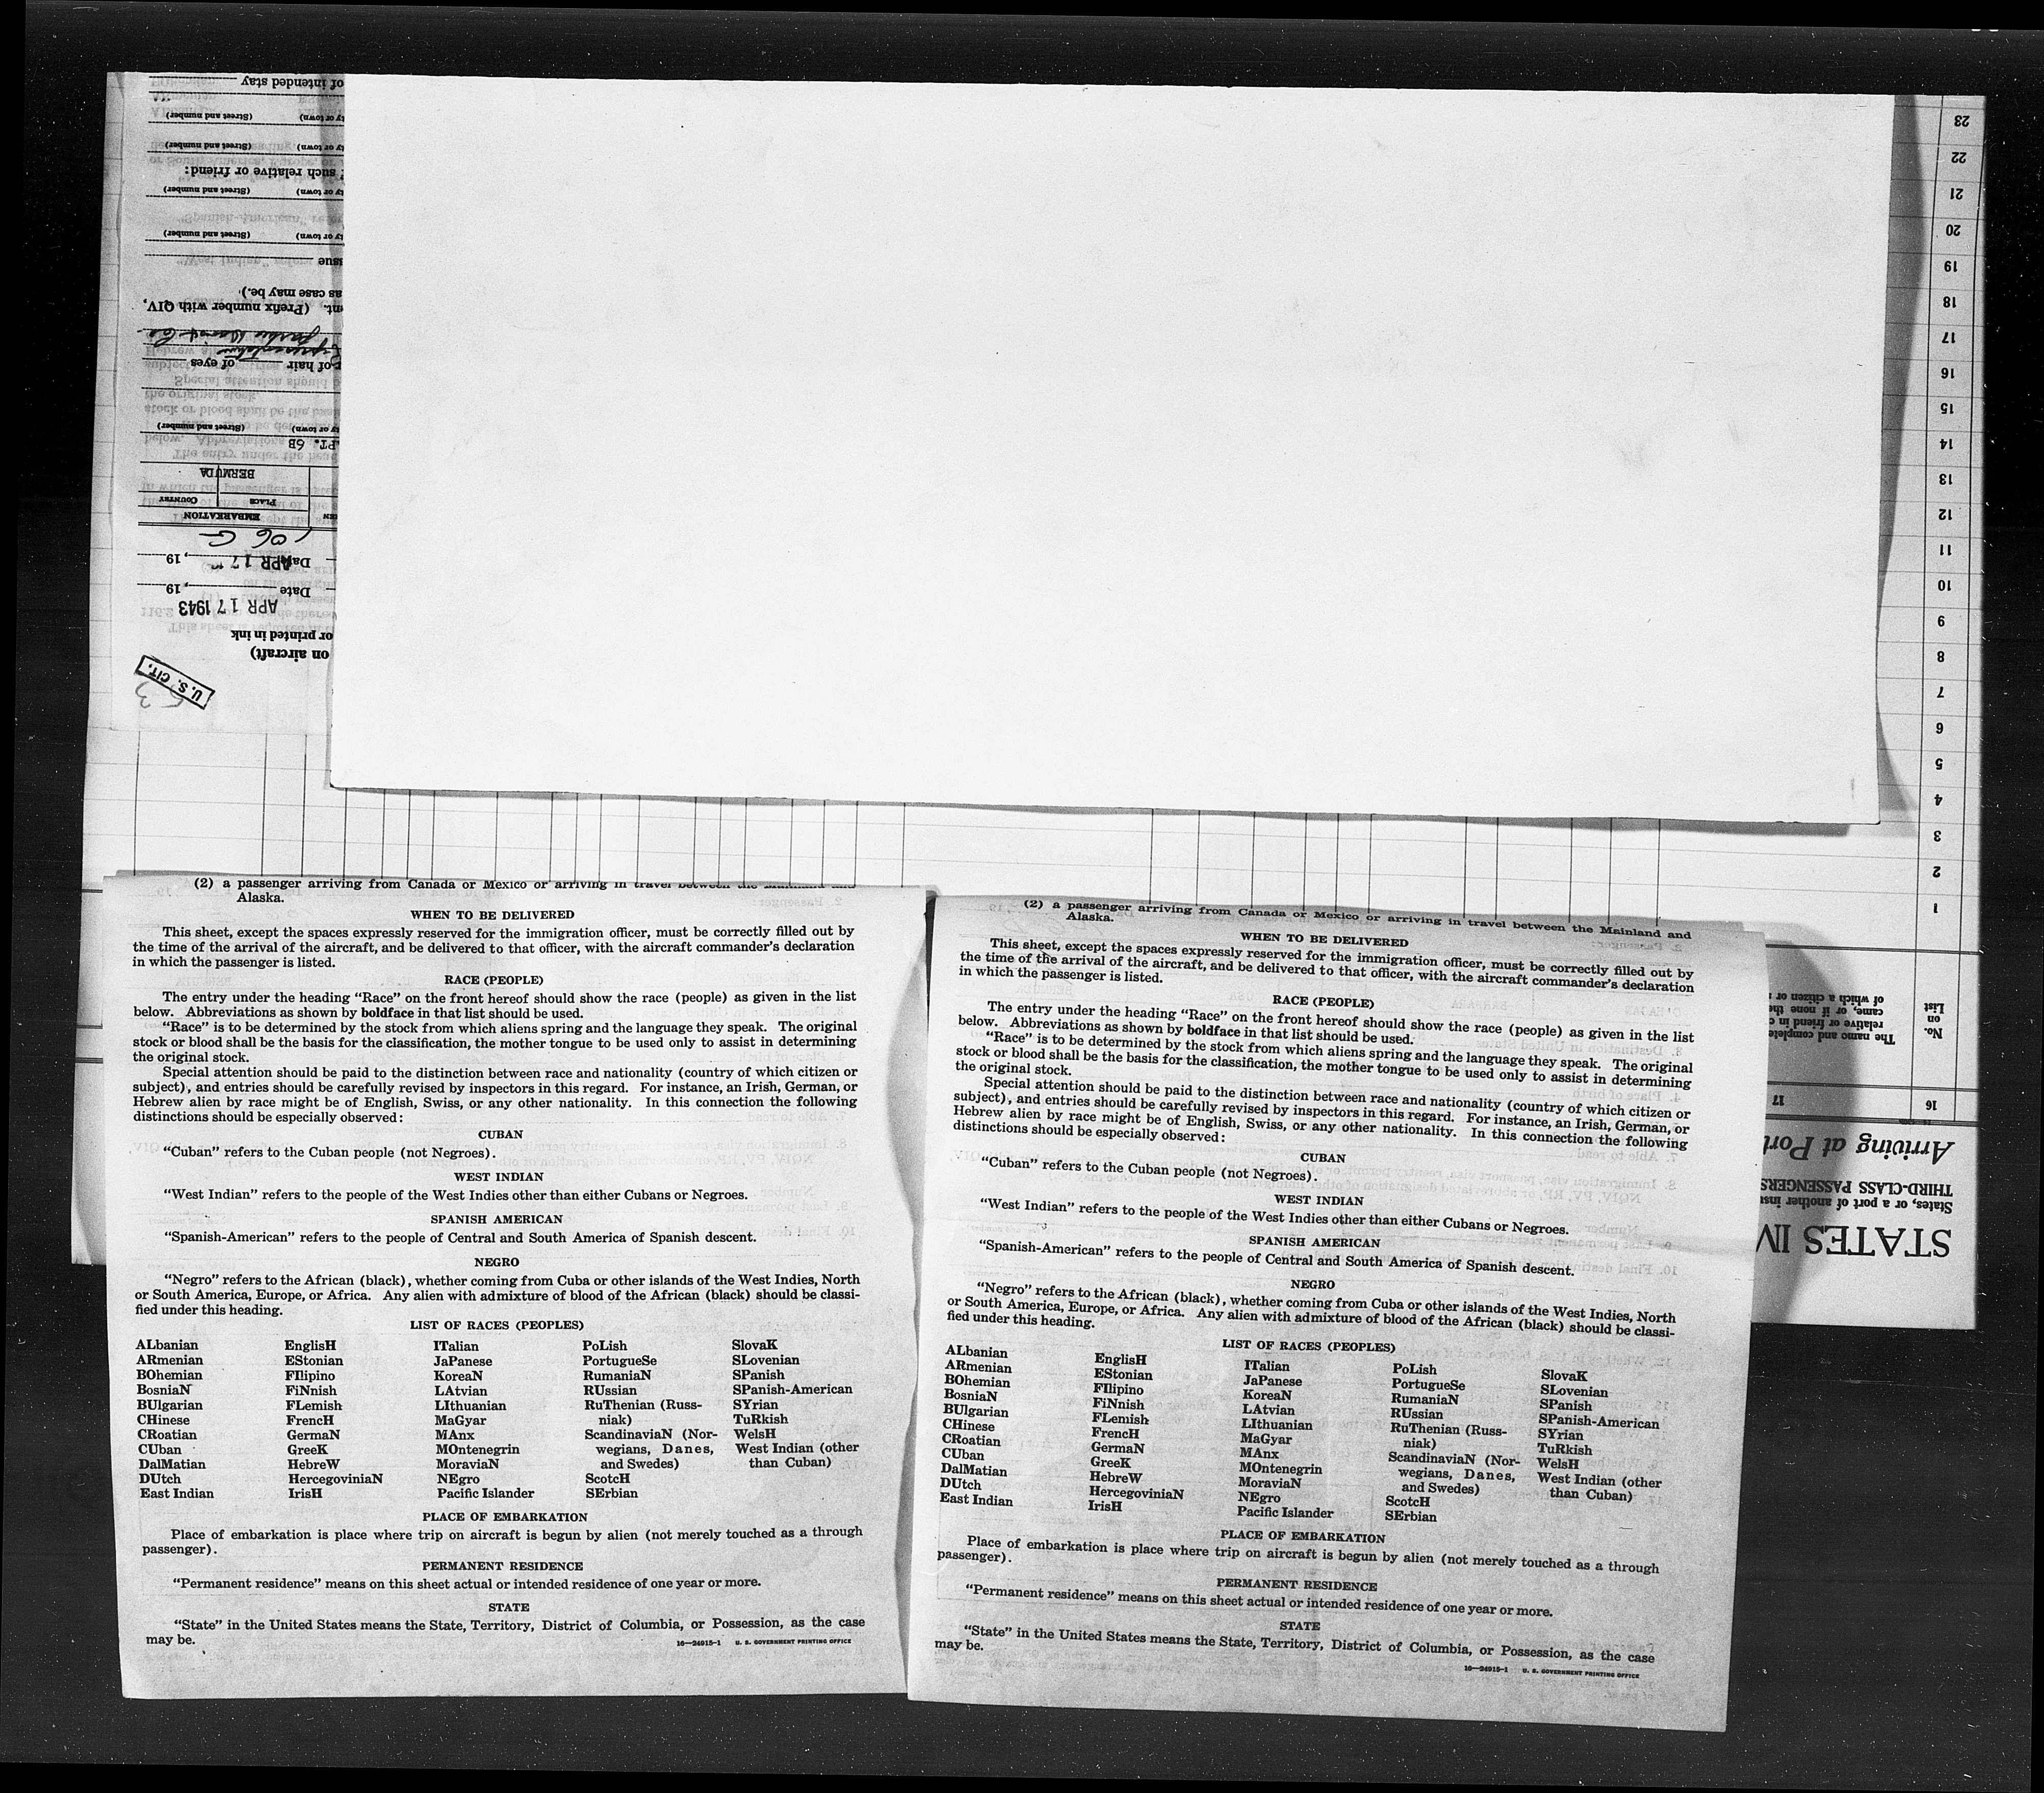 of intended stay
(City or town) (Street and number)
(City or town) (Street and number)
such relative or friend:
(City or town) (Street and number)
(City or town) (Street and number)
issue
as case may be.)
(Prefix number with QIV,
of hair of eyes
(City or town) (Street and number)
APT. 6B
BERMUDA
PLACE COUNTRY
EMBARKATION
106 G
Date APR 17 , 19
Date , 19
APR 17 1943
or printed in ink
on aircraft)
U. S. CIT.
53
23
22
21
20
19
18
17
16
15
14
13
12
11
10
9
8
7
6
5
4
3
2
1
No.
on
List
The name and complete
relative or friend in
came, or if none the
of which a citizen or
16 17
Arriving at Port
THIRD-CLASS PASSENGERS
States, or a port of another
STATES IM
(2) a passenger arriving from Canada or Mexico or arriving in travel between the Mainland and
Alaska.
WHEN TO BE DELIVERED
This sheet, except the spaces expressly reserved for the immigration officer, must be correctly filled out by
the time of the arrival of the aircraft, and be delivered to that officer, with the aircraft commander's declaration
in which the passenger is listed.
RACE (PEOPLE)
The entry under the heading "Race" on the front hereof should show the race (people) as given in the list
below. Abbreviations as shown by boldface in that list should be used.
"Race" is to be determined by the stock from which aliens spring and the language they speak. The original
stock or blood shall be the basis for the classification, the mother tongue to be used only to assist in determining
the original stock.
Special attention should be paid to the distinction between race and nationality (country of which citizen or
subject), and entries should be carefully revised by inspectors in this regard. For instance, an Irish, German, or
Hebrew alien by race might be of English, Swiss, or any other nationality. In this connection the following
distinctions should be especially observed:
CUBAN
"Cuban" refers to the Cuban people (not Negroes).
WEST INDIAN
"West Indian" refers to the people of the West Indies other than either Cubans or Negroes.
SPANISH AMERICAN
"Spanish-American" refers to the people of Central and South America of Spanish descent.
NEGRO
"Negro" refers to the African (black), whether coming from Cuba or other islands of the West Indies, North
or South America, Europe, or Africa. Any alien with admixture of blood of the African (black) should be classi-
fied under this heading.
LIST OF RACES (PEOPLES)
ALbanian EnglisH ITalian PoLish SlovaK
ARmenian EStonian JaPanese PortugueSe SLovenian
BOhemian FIlipino KoreaN RumaniaN SPanish
BosniaN FiNnish LAtvian RUssian SPanish-American
BUlgarian FLemish LIthuanian RuThenian (Russ- SYrian
CHinese FrencH MaGyar niak) TuRkish
CRoatian GermaN MAnx ScandinaviaN (Nor- WelsH
CUban GreeK MOntenegrin wegians, Danes, West Indian (other
DalMatian HebreW MoraviaN and Swedes) than Cuban)
DUtch HercegoviniaN NEgro ScotcH
East Indian IrisH Pacific Islander SErbian
PLACE OF EMBARKATION
Place of embarkation is place where trip on aircraft is begun by alien (not merely touched as a through
passenger).
PERMANENT RESIDENCE
"Permanent residence" means on this sheet actual or intended residence of one year or more.
STATE
"State" in the United States means the State, Territory, District of Columbia, or Possession, as the case
may be.
16—24915-1 U. S. GOVERNMENT PRINTING OFFICE
(2) a passenger arriving from Canada or Mexico or arriving in travel between the Mainland and
Alaska.
WHEN TO BE DELIVERED
This sheet, except the spaces expressly reserved for the immigration officer, must be correctly filled out by
the time of the arrival of the aircraft, and be delivered to that officer, with the aircraft commander's declaration
in which the passenger is listed.
RACE (PEOPLE)
The entry under the heading "Race" on the front hereof should show the race (people) as given in the list
below. Abbreviations as shown by boldface in that list should be used.
"Race" is to be determined by the stock from which aliens spring and the language they speak. The original
stock or blood shall be the basis for the classification, the mother tongue to be used only to assist in determining
the original stock.
Special attention should be paid to the distinction between race and nationality (country of which citizen or
subject), and entries should be carefully revised by inspectors in this regard. For instance, an Irish, German, or
Hebrew alien by race might be of English, Swiss, or any other nationality. In this connection the following
distinctions should be especially observed:
CUBAN
"Cuban" refers to the Cuban people (not Negroes).
WEST INDIAN
"West Indian" refers to the people of the West Indies other than either Cubans or Negroes.
SPANISH AMERICAN
"Spanish-American" refers to the people of Central and South America of Spanish descent.
NEGRO
"Negro" refers to the African (black), whether coming from Cuba or other islands of the West Indies, North
or South America, Europe, or Africa. Any alien with admixture of blood of the African (black) should be classi-
fied under this heading.
LIST OF RACES (PEOPLES)
ALbanian EnglisH ITalian PoLish SlovaK
ARmenian EStonian JaPanese PortugueSe SLovenian
BOhemian FIlipino KoreaN RumaniaN SPanish
BosniaN FiNnish LAtvian RUssian SPanish-American
BUlgarian FLemish LIthuanian RuThenian (Russ- SYrian
CHinese FrencH MaGyar niak) TuRkish
CRoatian GermaN MAnx ScandinaviaN (Nor- WelsH
CUban GreeK MOntenegrin wegians, Danes, West Indian (other
DalMatian HebreW MoraviaN and Swedes) than Cuban)
DUtch HercegoviniaN NEgro ScotcH
East Indian IrisH Pacific Islander SErbian
PLACE OF EMBARKATION
Place of embarkation is place where trip on aircraft is begun by alien (not merely touched as a through
passenger).
PERMANENT RESIDENCE
"Permanent residence" means on this sheet actual or intended residence of one year or more.
STATE
"State" in the United States means the State, Territory, District of Columbia, or Possession, as the case
may be.
16—24915-1 U. S. GOVERNMENT PRINTING OFFICE